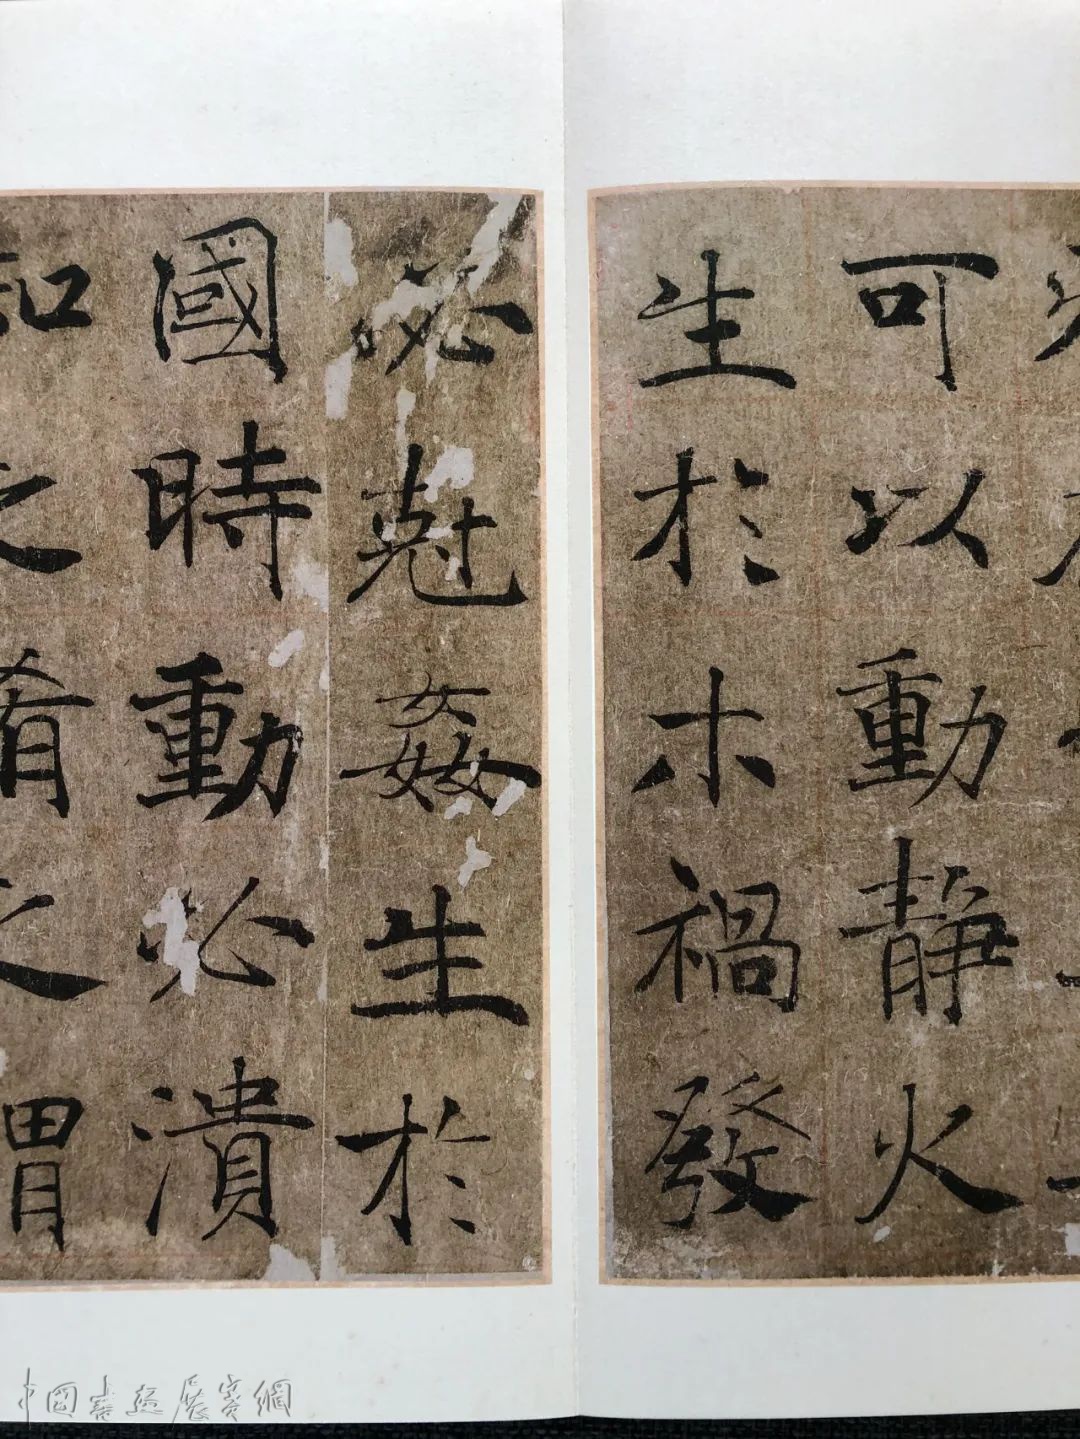 可以動靜火
生於木禍發
必尅姦生於
國時動必潰
知之之謂
中国書画展賽網